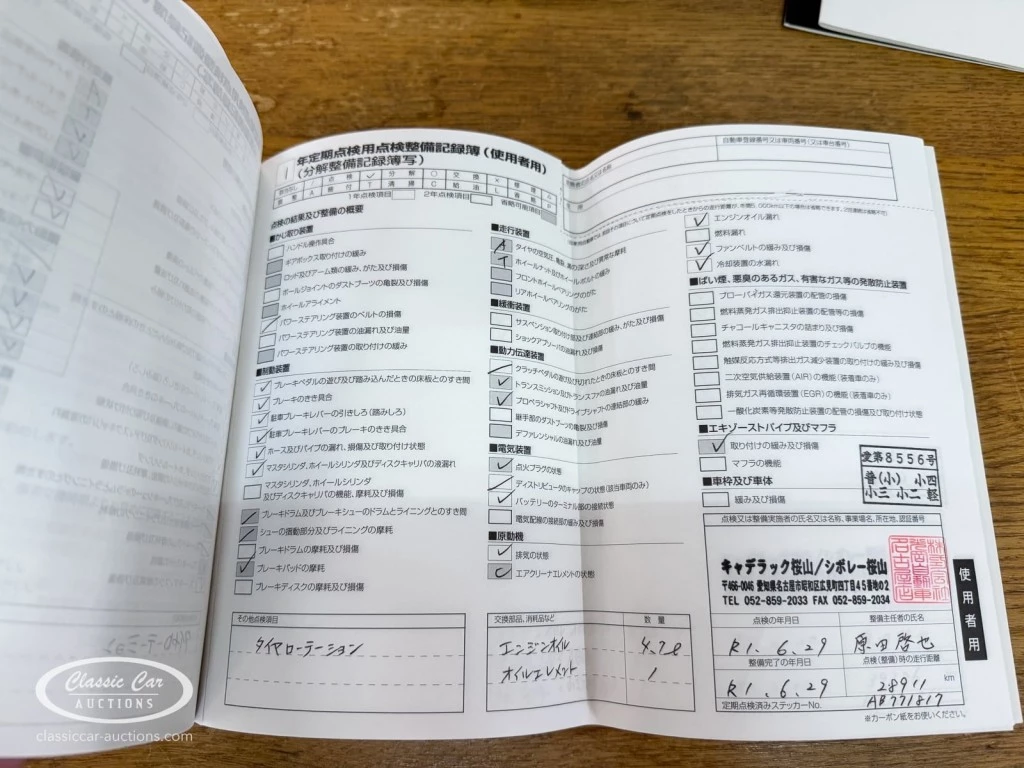 1年定期点検用点検整備記録簿(使用者用)
(分解整備記録簿写)
点検 ✓ 分解 ○ 交換 ×
T 清掃 C 給油 L
1年点検項目 2年点検項目 省略可能項目
点検の結果及び整備の概要
■かじ取り装置
ハンドル操作具合
ギアボックス取り付けの緩み
ロッド及びアーム類の緩み、がた及び損傷
ボールジョイントのダストブーツの亀裂及び損傷
ホイールアライメント
パワーステアリング装置のベルトの損傷
パワーステアリング装置の油漏れ及び油量
パワーステアリング装置の取り付けの緩み
■制動装置
ブレーキペダルの遊び及び踏み込んだときの床板とのすき間
ブレーキのきき具合
駐車ブレーキレバーの引きしろ(踏みしろ)
駐車ブレーキレバーのブレーキのきき具合
ホース及びパイプの漏れ、損傷及び取り付け状態
マスタシリンダ、ホイールシリンダ及びディスクキャリパの液漏れ
マスタシリンダ、ホイールシリンダ
及びディスクキャリパの機能、摩耗及び損傷
ブレーキドラム及びブレーキシューのドラムとライニングとのすき間
シューの摺動部分及びライニングの摩耗
ブレーキドラムの摩耗及び損傷
ブレーキパッドの摩耗
ブレーキディスクの摩耗及び損傷
その他点検項目
タイヤローテーション
■走行装置
タイヤの空気圧、亀裂、
ホイールナット及びホイールボルトの緩み
フロントホイールベアリングのがた
リアホイールベアリングのがた
■緩衝装置
サスペンション取り付け部及び連結部の緩み、がた及び損傷
ショックアブソーバの油漏れ及び損傷
■動力伝達装置
クラッチペダルの遊び及び切れたときの床板とのすき間
トランスミッション及びトランスファの油漏れ及び油量
プロペラシャフト及びドライブシャフトの連結部の緩み
継手部のダストブーツの亀裂及び損傷
デファレンシャルの油漏れ及び油量
■電気装置
点火プラグの状態
ディストリビュータのキャップの状態(該当車両のみ)
バッテリーのターミナル部の接続状態
電気配線の接続部の緩み及び損傷
■原動機
排気の状態
エアクリーナエレメントの状態
交換部品、消耗品など 数量
エンジンオイル 4.7ℓ
オイルエレメント 1
自動車登録番号又は車両番号(又は車台番号)
エンジンオイル漏れ
燃料漏れ
ファンベルトの緩み及び損傷
冷却装置の水漏れ
■ばい煙、悪臭のあるガス、有害なガス等の発散防止装置
ブローバイガス還元装置の配管の損傷
燃料蒸発ガス排出抑止装置の配管等の損傷
チャコールキャニスタの詰まり及び損傷
燃料蒸発ガス排出抑止装置のチェックバルブの機能
触媒反応方式等排出ガス減少装置の取り付けの緩み及び損傷
二次空気供給装置(AIR)の機能(装着車のみ)
排気ガス再循環装置(EGR)の機能(装着車のみ)
一酸化炭素等発散防止装置の配管の損傷及び取り付け状態
■エキゾーストパイプ及びマフラ
取り付けの緩み及び損傷
マフラの機能
■車枠及び車体
緩み及び損傷
愛第8556号
普(小) 小四
小三 小二 軽
点検又は整備実施者の氏名又は名称、事業場名、所在地、認証番号
キャデラック桜山/シボレー桜山
〒466-0046 愛知県名古屋市昭和区広見町四丁目45番地の2
TEL 052-859-2033 FAX 052-859-2034
点検の年月日 整備主任者の氏名
R1.6.29 原田啓也
整備完了の年月日 点検(整備)時の走行距離
R1.6.29 28911 km
定期点検済みステッカーNo. AB771817
※カーボン紙をお使いください。
使用者用
Classic Car
AUCTIONS
classiccar-auctions.com